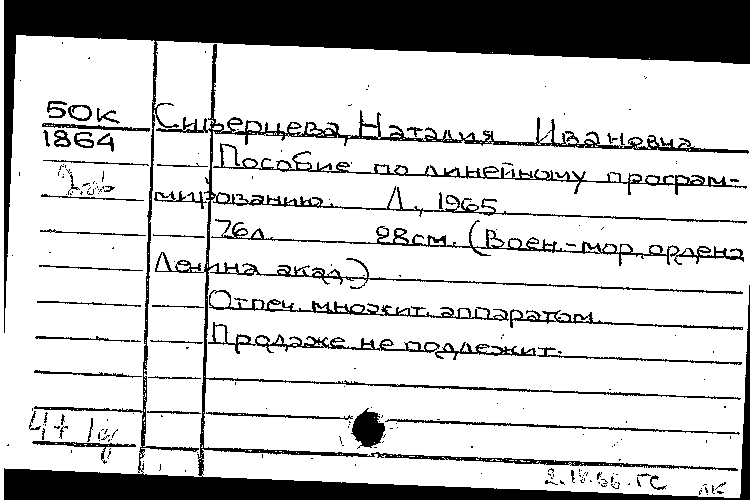 50к Сиверцева, Наталия Ивановна
1864
Пособие по линейному програм-
мированию. Л., 1965.
76л. 28см. (Воен.-мор. ордена
Ленина акад.)
Отпеч. множит. аппаратом.
Продаже не подлежит.
4+1
2.IV.66 ГС лк